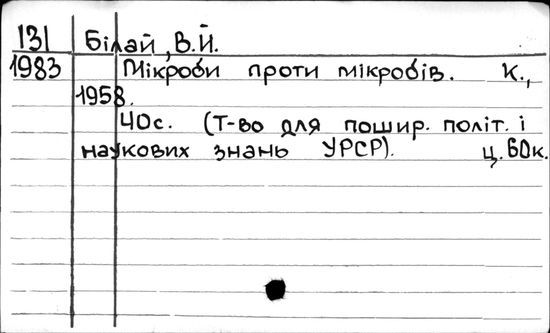 131 Білай, В.Й.
1983 Мікроби проти мікробів. К.,
1958.
40с. (Т-во для пошир. політ. і
наукових знань УРСР). ц. 60к.